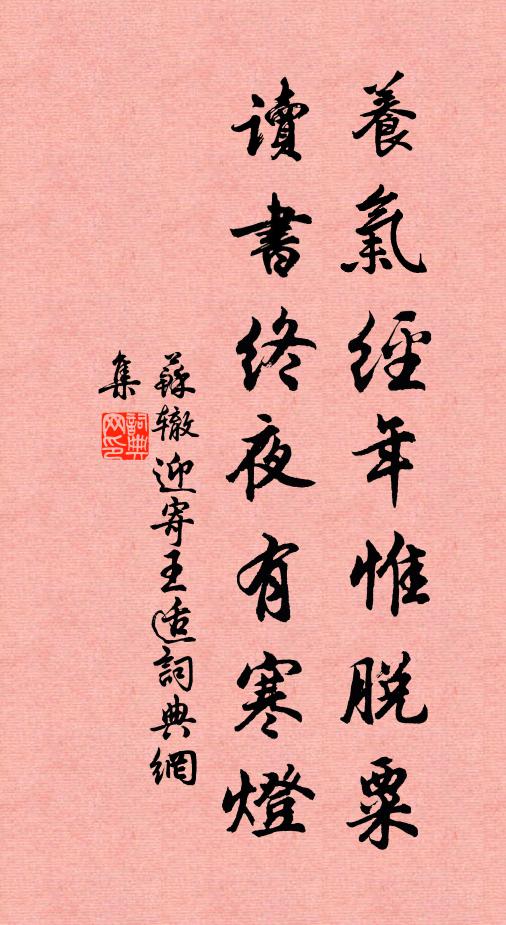 養氣經年惟脫粟
讀書終夜有寒燈
蘇轍迎寄王适詞典網
集
詞典网印